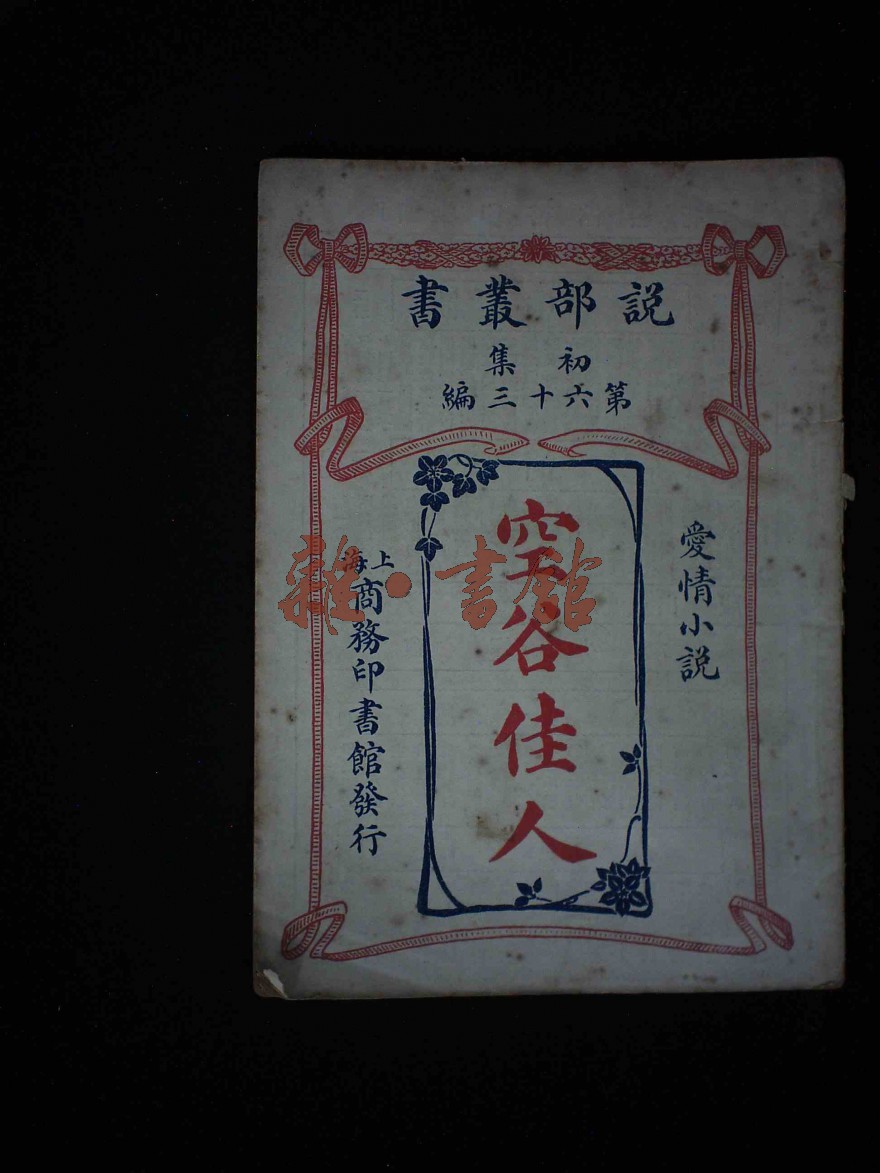 説部叢書
初集
第六十三編
愛情小説
空谷佳人
上海
商務印書館發行
雜·書館